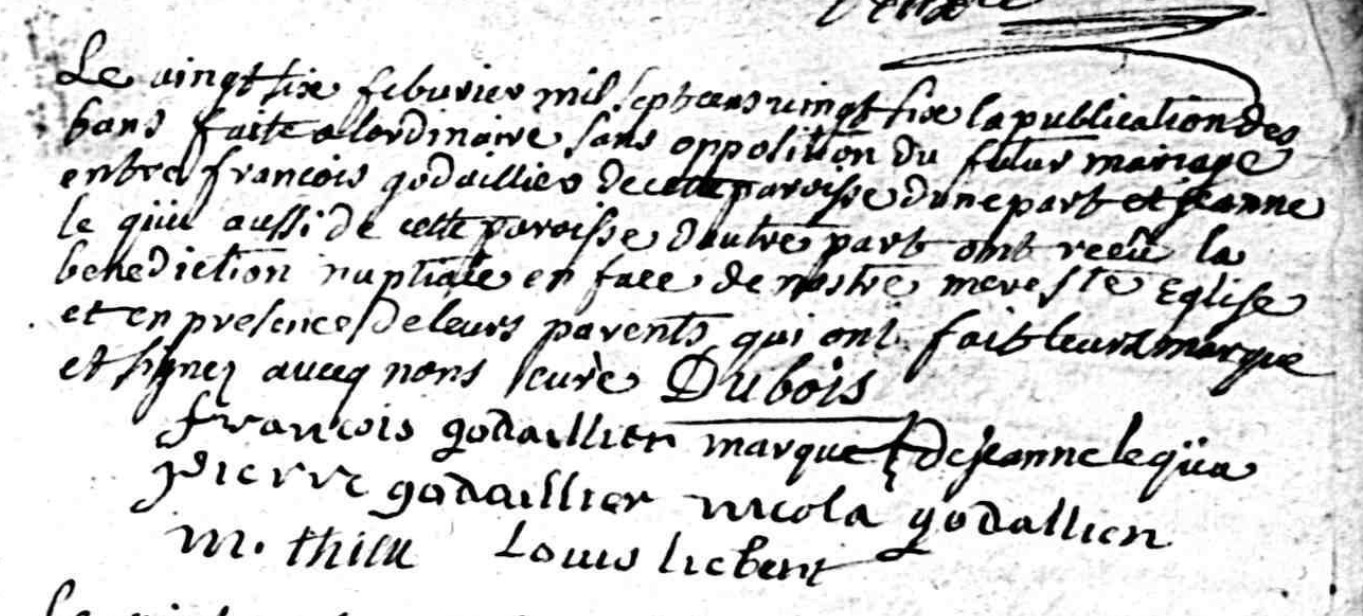 Le vingt six feburier mil septcens vingt six la publication des
bans faite a lordinaire sans oppolition du futur mariage
entre francois godaillier de cette paroisse dune part et jeanne
le qüu aussi de cette paroisse dautre part ont reçeu la
benediction nuptiale en face de nostre mere ste Eglise
et en presence de leurs parents qui ont fait leurs marque
et signez avecq nous curé Dubois
francois godaillier marque de jeanne le qüa
pierre godaillier nicola godallien
m. thieu Louis liebent